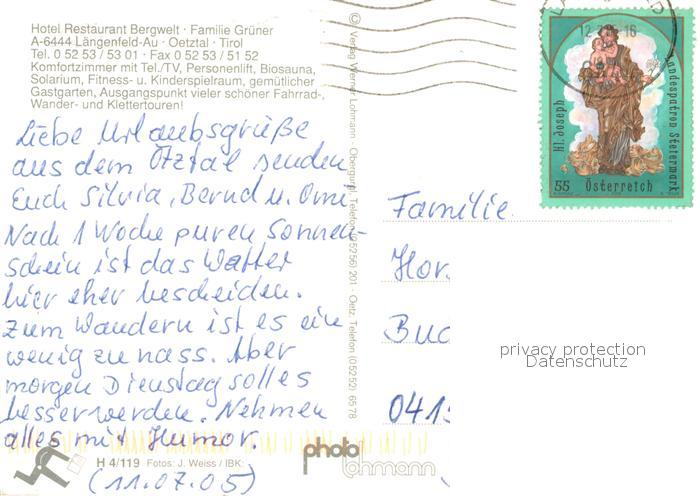 Hotel Restaurant Bergwelt · Familie Grüner
A-6444 Längenfeld-Au · Oetztal · Tirol
Tel. 0 52 53 / 53 01 · Fax 0 52 53 / 51 52
Komfortzimmer mit Tel./TV, Personenlift, Biosauna,
Solarium, Fitness- u. Kinderspielraum, gemütlicher
Gastgarten, Ausgangspunkt vieler schöner Fahrrad-,
Wander- und Klettertouren!
Liebe Urlaubsgrüße
aus dem Ötztal senden
Euch Silvia, Bernd u. Omi
Nach 1 Woche puren Sonnen-
schein ist das Wetter
hier eher bescheiden.
Zum Wandern ist es ein
wenig zu nass. Aber
morgen Dienstag solles
besser werden. Nehmen
alles mit Humor.
H 4/119 Fotos: J. Weiss / IBK
(11.07.05)
photo
lohmann
© Verlag Werner Lohmann · Obergurgl, Telefon (05256) 201 · Oetz, Telefon (05252) 65 78
12 16
Hl. Joseph
Landespatron Steiermark
55 Österreich
Familie
Hor
Buc
041
privacy protection
Datenschutz